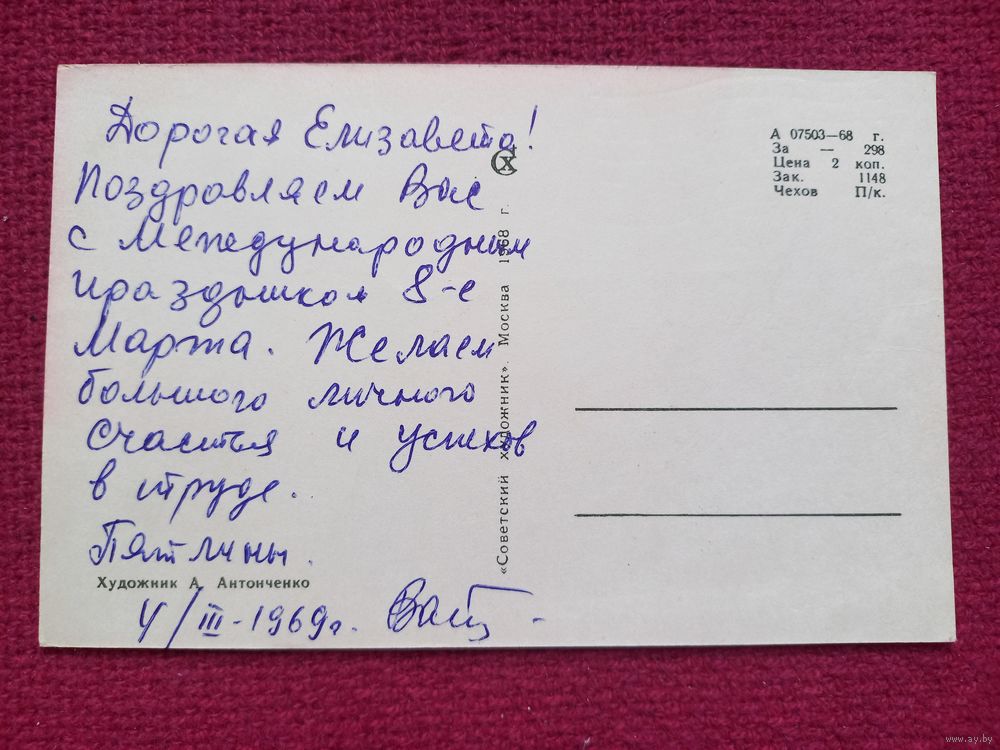 Дорогая Елизавета!
Поздравляем Вас
с Международным
праздником 8-е
Марта. Желаем
большого личного
счастья и успехов
в труде.
Художник А. Антонченко
4/III-1969г.
«Советский художник». Москва 1968 г.
А 07503—68 г.
За — 298
Цена 2 коп.
Зак. 1148
Чехов П/к.
www.ay.by